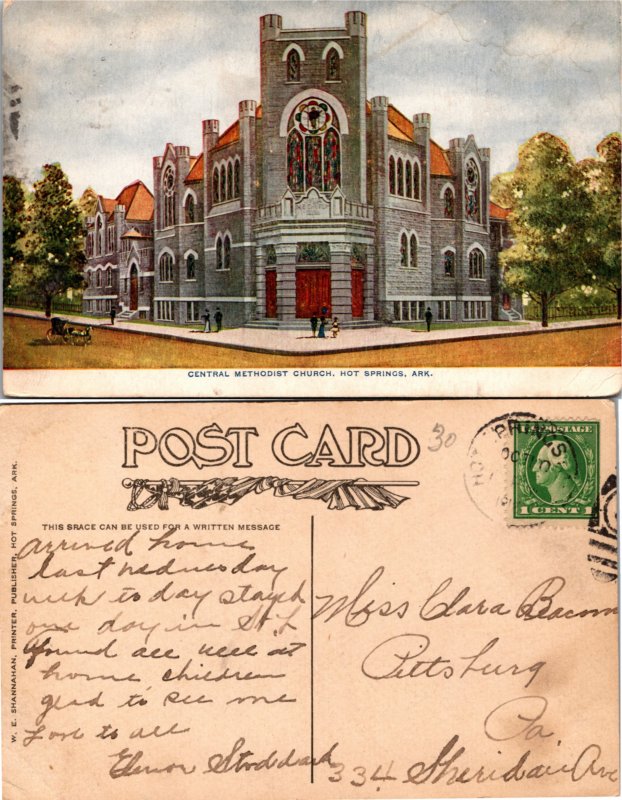 CENTRAL METHODIST CHURCH, HOT SPRINGS, ARK.
POST CARD
30
THIS SPACE CAN BE USED FOR A WRITTEN MESSAGE
W. E. SHANNAHAN, PRINTER, PUBLISHER, HOT SPRINGS, ARK.
U.S. POSTAGE
1 CENT 1
arrived home
last wednesday
week to day stayed
one day in St L
found all well at
home children
glad to see me
Love to all
Elenor Stoddark
Miss Clara Beacom
Pittsburg
Pa
334 Sheridan Ave